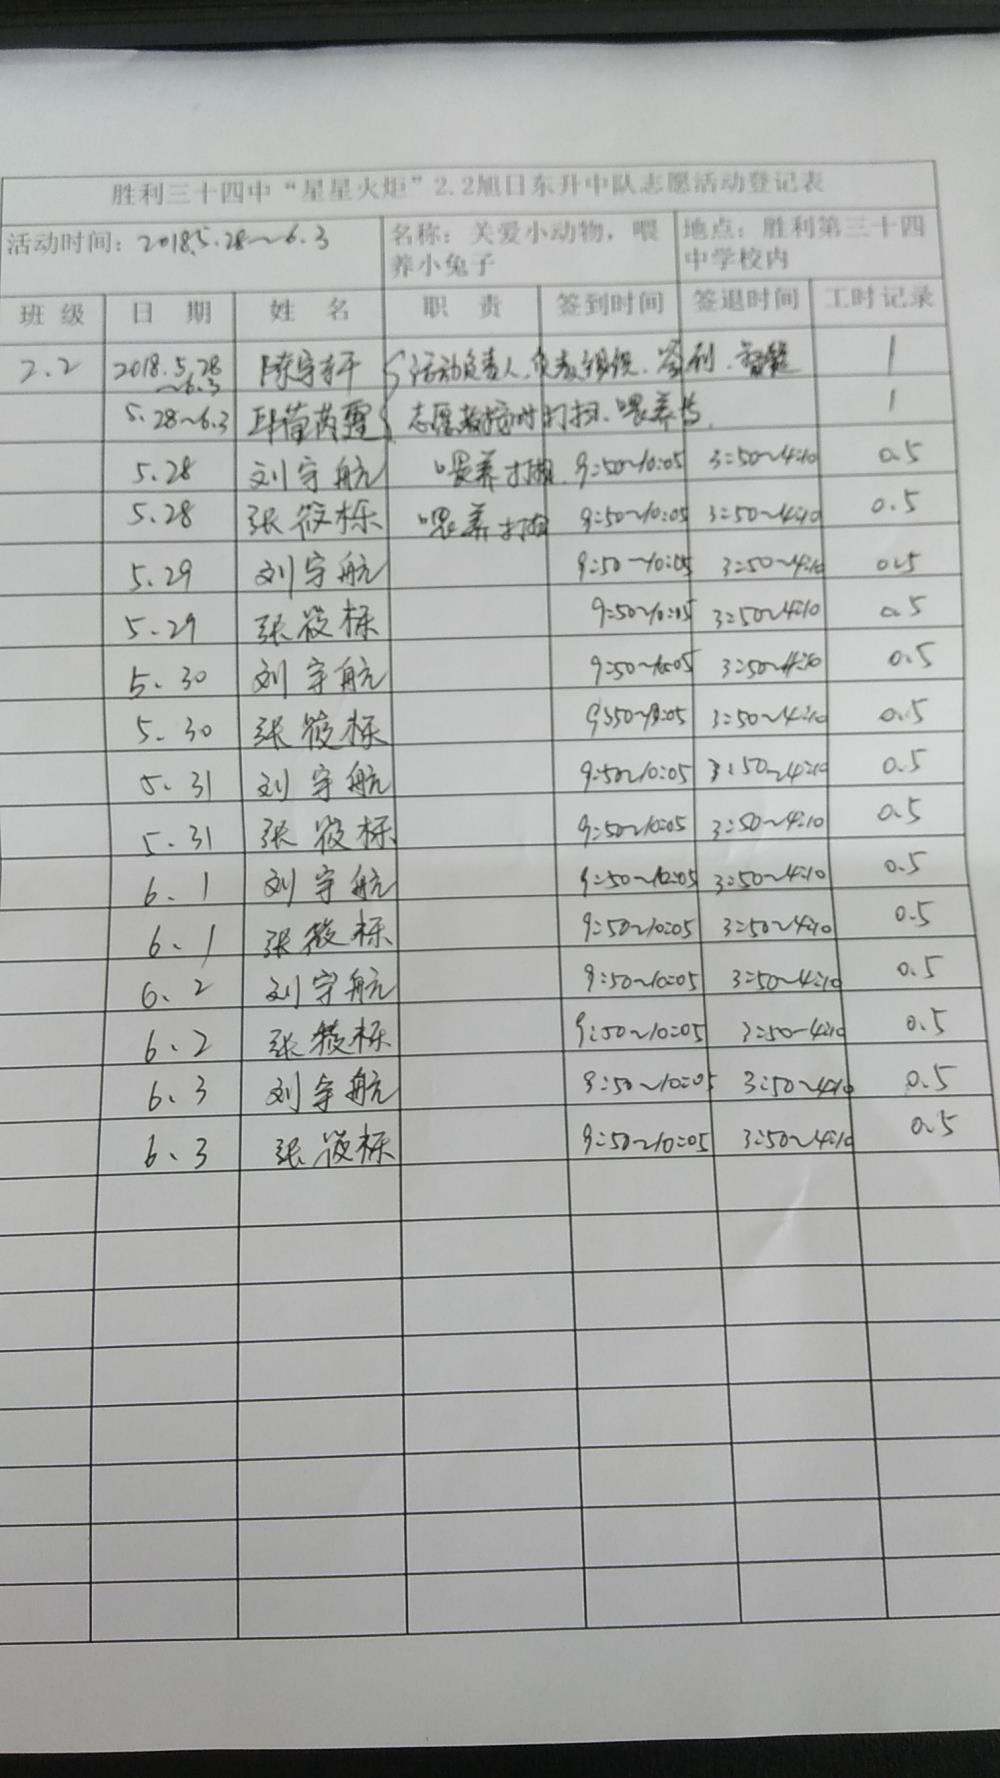 胜利三十四中“星星火炬”2.2旭日东升中队志愿活动登记表
活动时间：2018.5.28～6.3 名称：关爱小动物，喂养小兔子 地点：胜利第三十四中学校内
班级 日期 姓名 职责 签到时间 签退时间 工时记录
2.2 2018.5.28～6.3 陈宇轩 活动负责人.负责组织.签到. 1
5.28～6.3 志愿 打扫.喂养 1
5.28 刘宇航 喂养打扫 9:50～10:05 3:50～4:10 0.5
5.28 张筱栎 喂养打扫 9:50～10:05 3:50～4:10 0.5
5.29 刘宇航 9:50～10:05 3:50～4:10 0.5
5.29 张筱栎 9:50～10:05 3:50～4:10 0.5
5.30 刘宇航 9:50～10:05 3:50～4:10 0.5
5.30 张筱栎 9:50～10:05 3:50～4:10 0.5
5.31 刘宇航 9:50～10:05 3:50～4:10 0.5
5.31 张筱栎 9:50～10:05 3:50～4:10 0.5
6.1 刘宇航 9:50～10:05 3:50～4:10 0.5
6.1 张筱栎 9:50～10:05 3:50～4:10 0.5
6.2 刘宇航 9:50～10:05 3:50～4:10 0.5
6.2 张筱栎 9:50～10:05 3:50～4:10 0.5
6.3 刘宇航 9:50～10:05 3:50～4:10 0.5
6.3 张筱栎 9:50～10:05 3:50～4:10 0.5